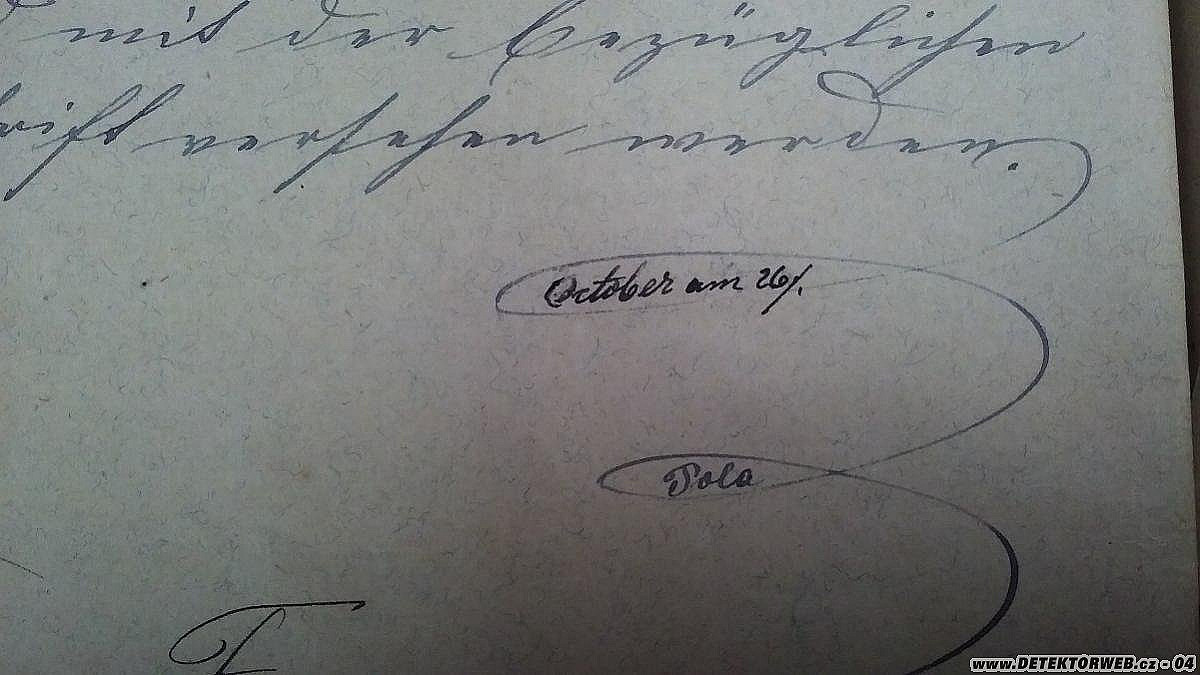 mit der bezüglichen
rift versehen werden.
October am 26/.
Pola
www.DETEKTORWEB.cz - 04